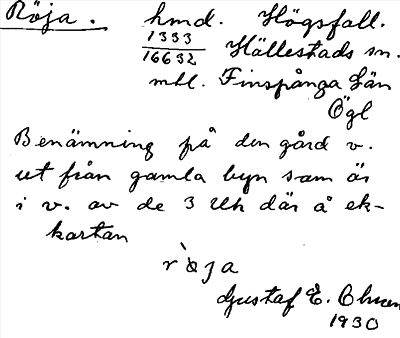 Röja. hmd. Högsfall.
1333
16632 Hällestads sn.
mhl. Finspånga Län
Ögl
Benämning på den gård v.
ut från gamla byn som är
i v. av de 3 Uh där å ek-
kartan
ròja
Gustaf E.
1930